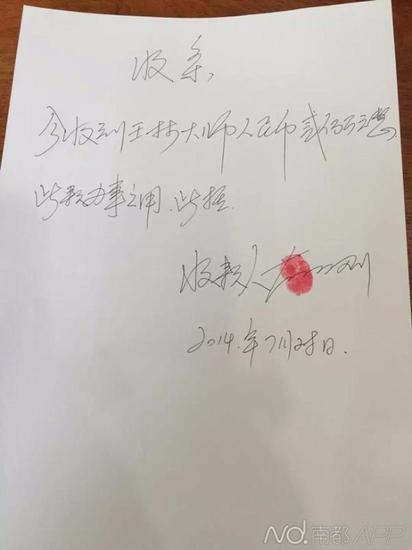 收条,
今收到王林大师人民币贰佰万元整
此款办事之用.此据.
收款人
2014.年7月25日.
南都APP